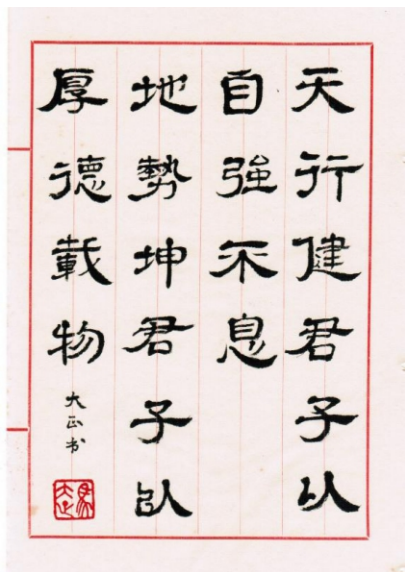 天行健君子以
自強不息
地勢坤君子以
厚德載物
大正书